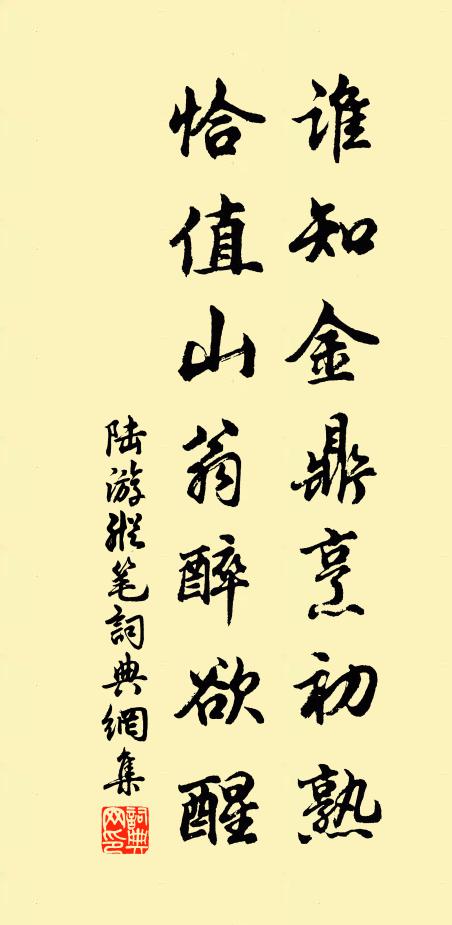 谁知金鼎烹初熟
恰值山翁醉欲醒
陆游纵笔詞典網集
詞典
网印